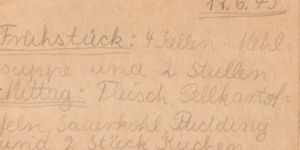 17.6.43
Frühstück: 4 Kellen Mehl
suppe und 2 Stullen
Mittag: Fleisch, Pellkartof-
feln, Sauerkohl Pudding
und 2 Stück Kuchen